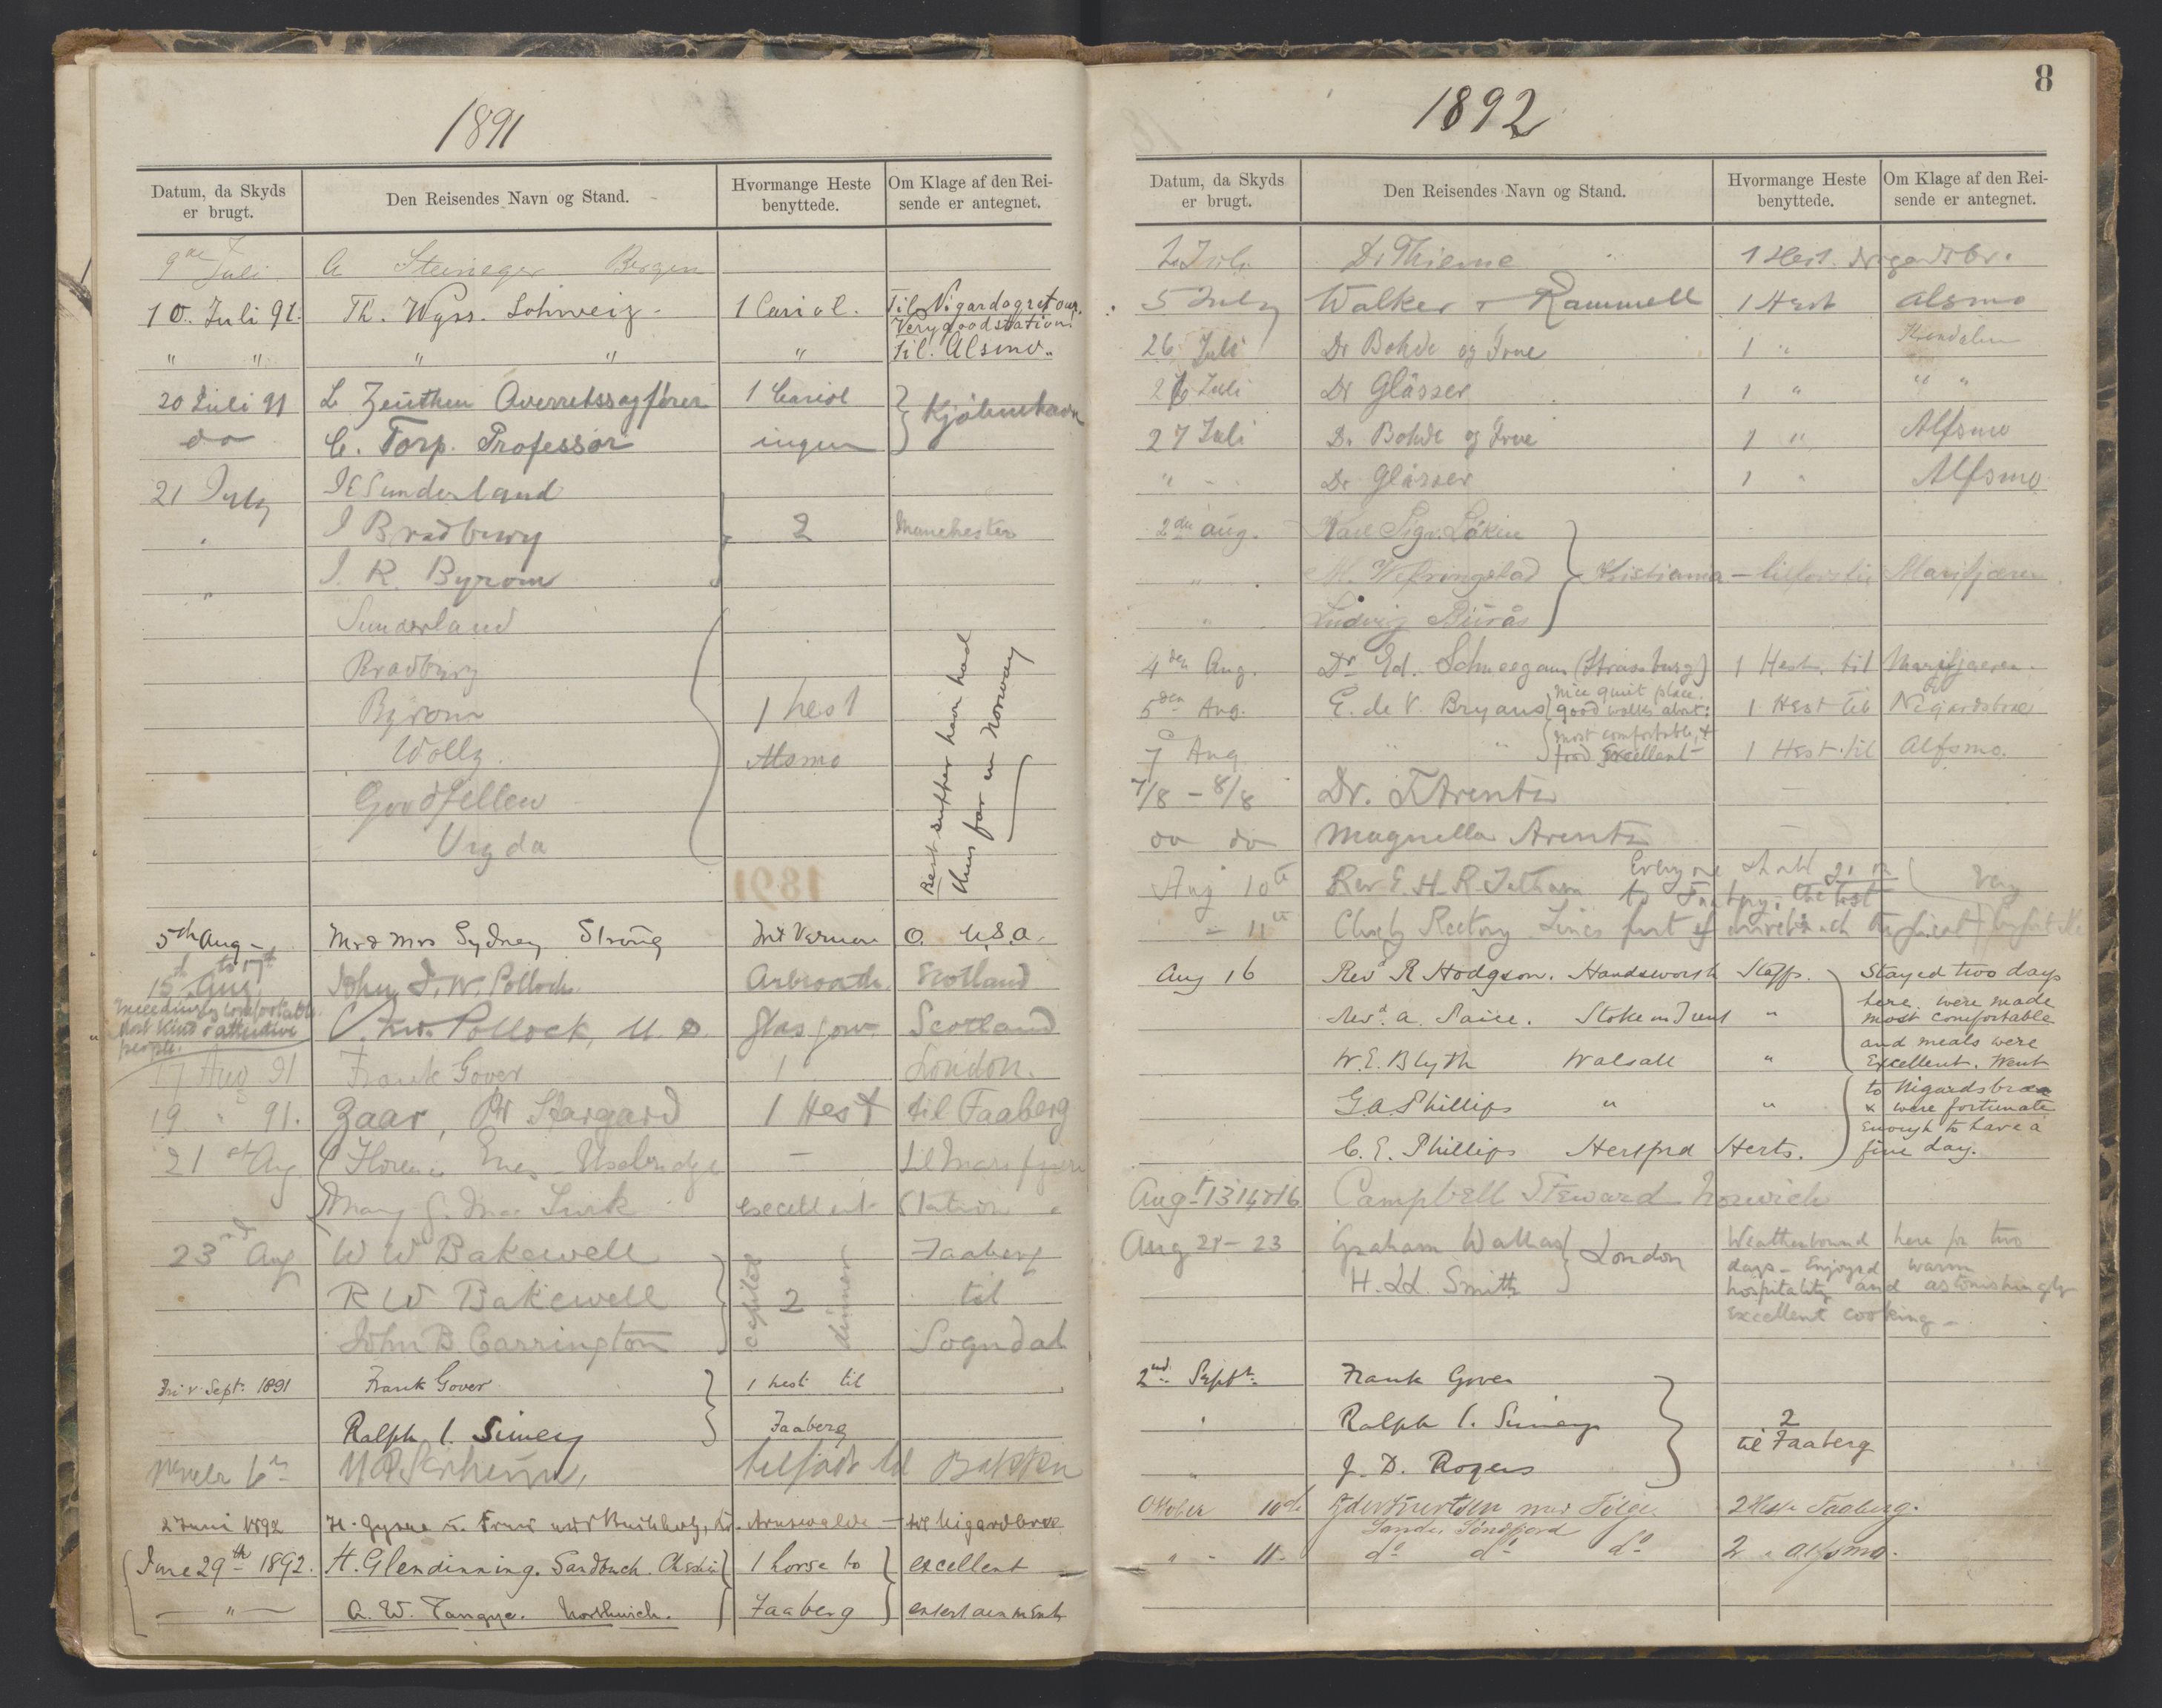 1891
Datum, da Skyds er brugt. Den Reisendes Navn og Stand. Hvormange Heste benyttede. Om Klage af den Reisende er antegnet.
9de Juli A Steineger Bergen
10. Juli 91. Th. Wyss. Schweiz. 1 Cariol. Til Nigardsgret our.
Very good station.
" " " " " Til. Alsmo.
20 Juli 91 L Zeuthen Overretssagfører 1 Cariol } Kjöbenhavn
do C. Torp. Professor ingen
21 July J E Sunderland
" J Bradbury 2 Manchester
" J. R. Byrom
Sunderland
Bradbury
Byrom 1 hest
Wolly. Alsmo
Goodfellow
Urgda
Best supper have had
thus far in Norway
5th Aug - Mr & Mrs Sydney Strong Mt Vernon O. U.S.A.
15th to 17th Aug. John D. W. Pollock Arbroath Scotland
Exceedingly comfortable.
Most kind & attentive
people.
Pollock, M.D. Glasgow Scotland
17 Aug 91 Frank Gover 1 London.
19 " 91. Zaar, Stargard 1 Hest til Faaberg
21st Aug Uxbridge — til Marifjæren
Mary excellent Station
23rd Aug W W Bakewell Faaberg
R W Bakewell 2 til
John B Carrington Sogndal
capital dinner
Fri v. Sept. 1891 Frank Gover 1 hest til
Ralph I. Simey Faaberg
til Bakken
2 Juni 1892 Arnswalde — til Nigardbræ
June 29th 1892. H. Glendinning. Sandbach. Cheshire 1 horse to excellent
— " — A. W. Tangye. Northwich. Faaberg entertainment
8
1892
Datum, da Skyds er brugt. Den Reisendes Navn og Stand. Hvormange Heste benyttede. Om Klage af den Reisende er antegnet.
2 Juli Dr Thieme 1 Hest
5 July Walker & Rammell 1 Hest Alsmo
26 Juli Dr Bohde og Frue 1 "
26 Juli Dr Glässer 1 " " "
27 Juli Dr Bohde og Frue 1 " Alfsmo
" - Dr Glässer 1 " Alfsmo
2den Aug. Karl Sigv. Løken
" M. Vefringstad } Kristiania — Marifjæren
" Ludvig Burås
4den Aug. Dr Ed. Schneegans (Strassburg) 1 Hest til Marifjæren.
5den Aug. E. de V. Bryans nice quiet place. good walks about: 1 Hest til Nigardsbræ
7 Aug " " most comfortable, & food excellent 1 Hest til Alfsmo.
7/8 – 8/8 Dr. F Arentz —
do do Magnella Arentz —
Aug 10th Rev E. H. R. Tatham Everyone should go
- 11th Claxby Rectory Lincs
Aug 16 Revd R Hodgson. Handsworth Staffs. Stayed two days
here. were made
Revd. A. Saice. Stoke on Trent " most comfortable
and meals were
W. E. Blyth Walsall " Excellent. Went
to Nigardsbræen
G. A. Phillips " " & were fortunate
enough to have a
C. E. Phillips Hertford Herts. fine day.
Augt 13 14 & 16 Campbell Steward Norwich
Aug 21–23 Graham Wallas } London Weatherbound here for two
H. Ll. Smith days – Enjoyed warm
hospitality and astonishingly
excellent cooking –
2nd Septr. Frank Gover
" Ralph I. Simey 2
til Faaberg
" J. D. Rogers
Oktober 10de med Følge. 2 Heste Faaberg.
Sande Søndfjord
" - 11. do do do 2 " Alfsmo.